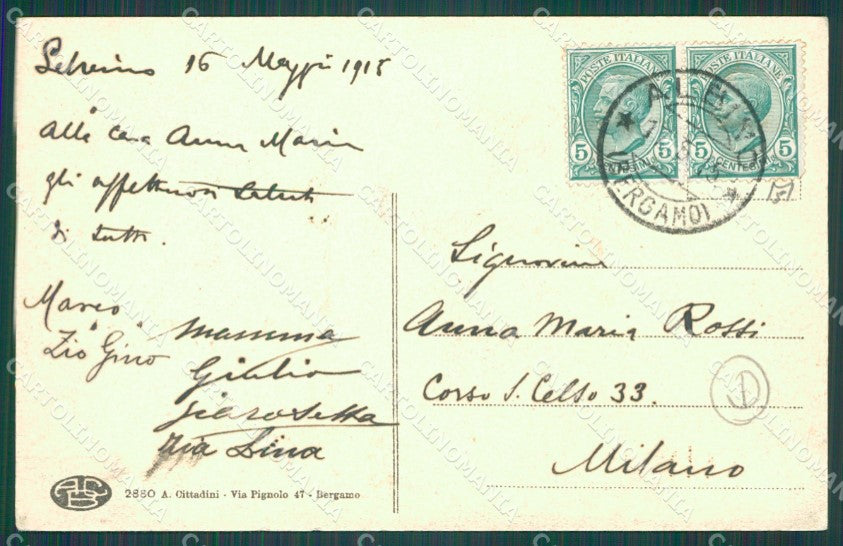 Selvino 16 Maggio 1915
Alla cara Anna Maria
gli affettuosi saluti
di tutti.
Marco
"Zio Gino"
mamma
Giulio
Zia Lina
2880 A. Cittadini - Via Pignolo 47 - Bergamo
POSTE ITALIANE
5 5
POSTE ITALIANE
5 5
(BERGAMO)
Signorina
Anna Maria Rossi
Corso S. Celso 33.
Milano
CARTOLINOMANIA